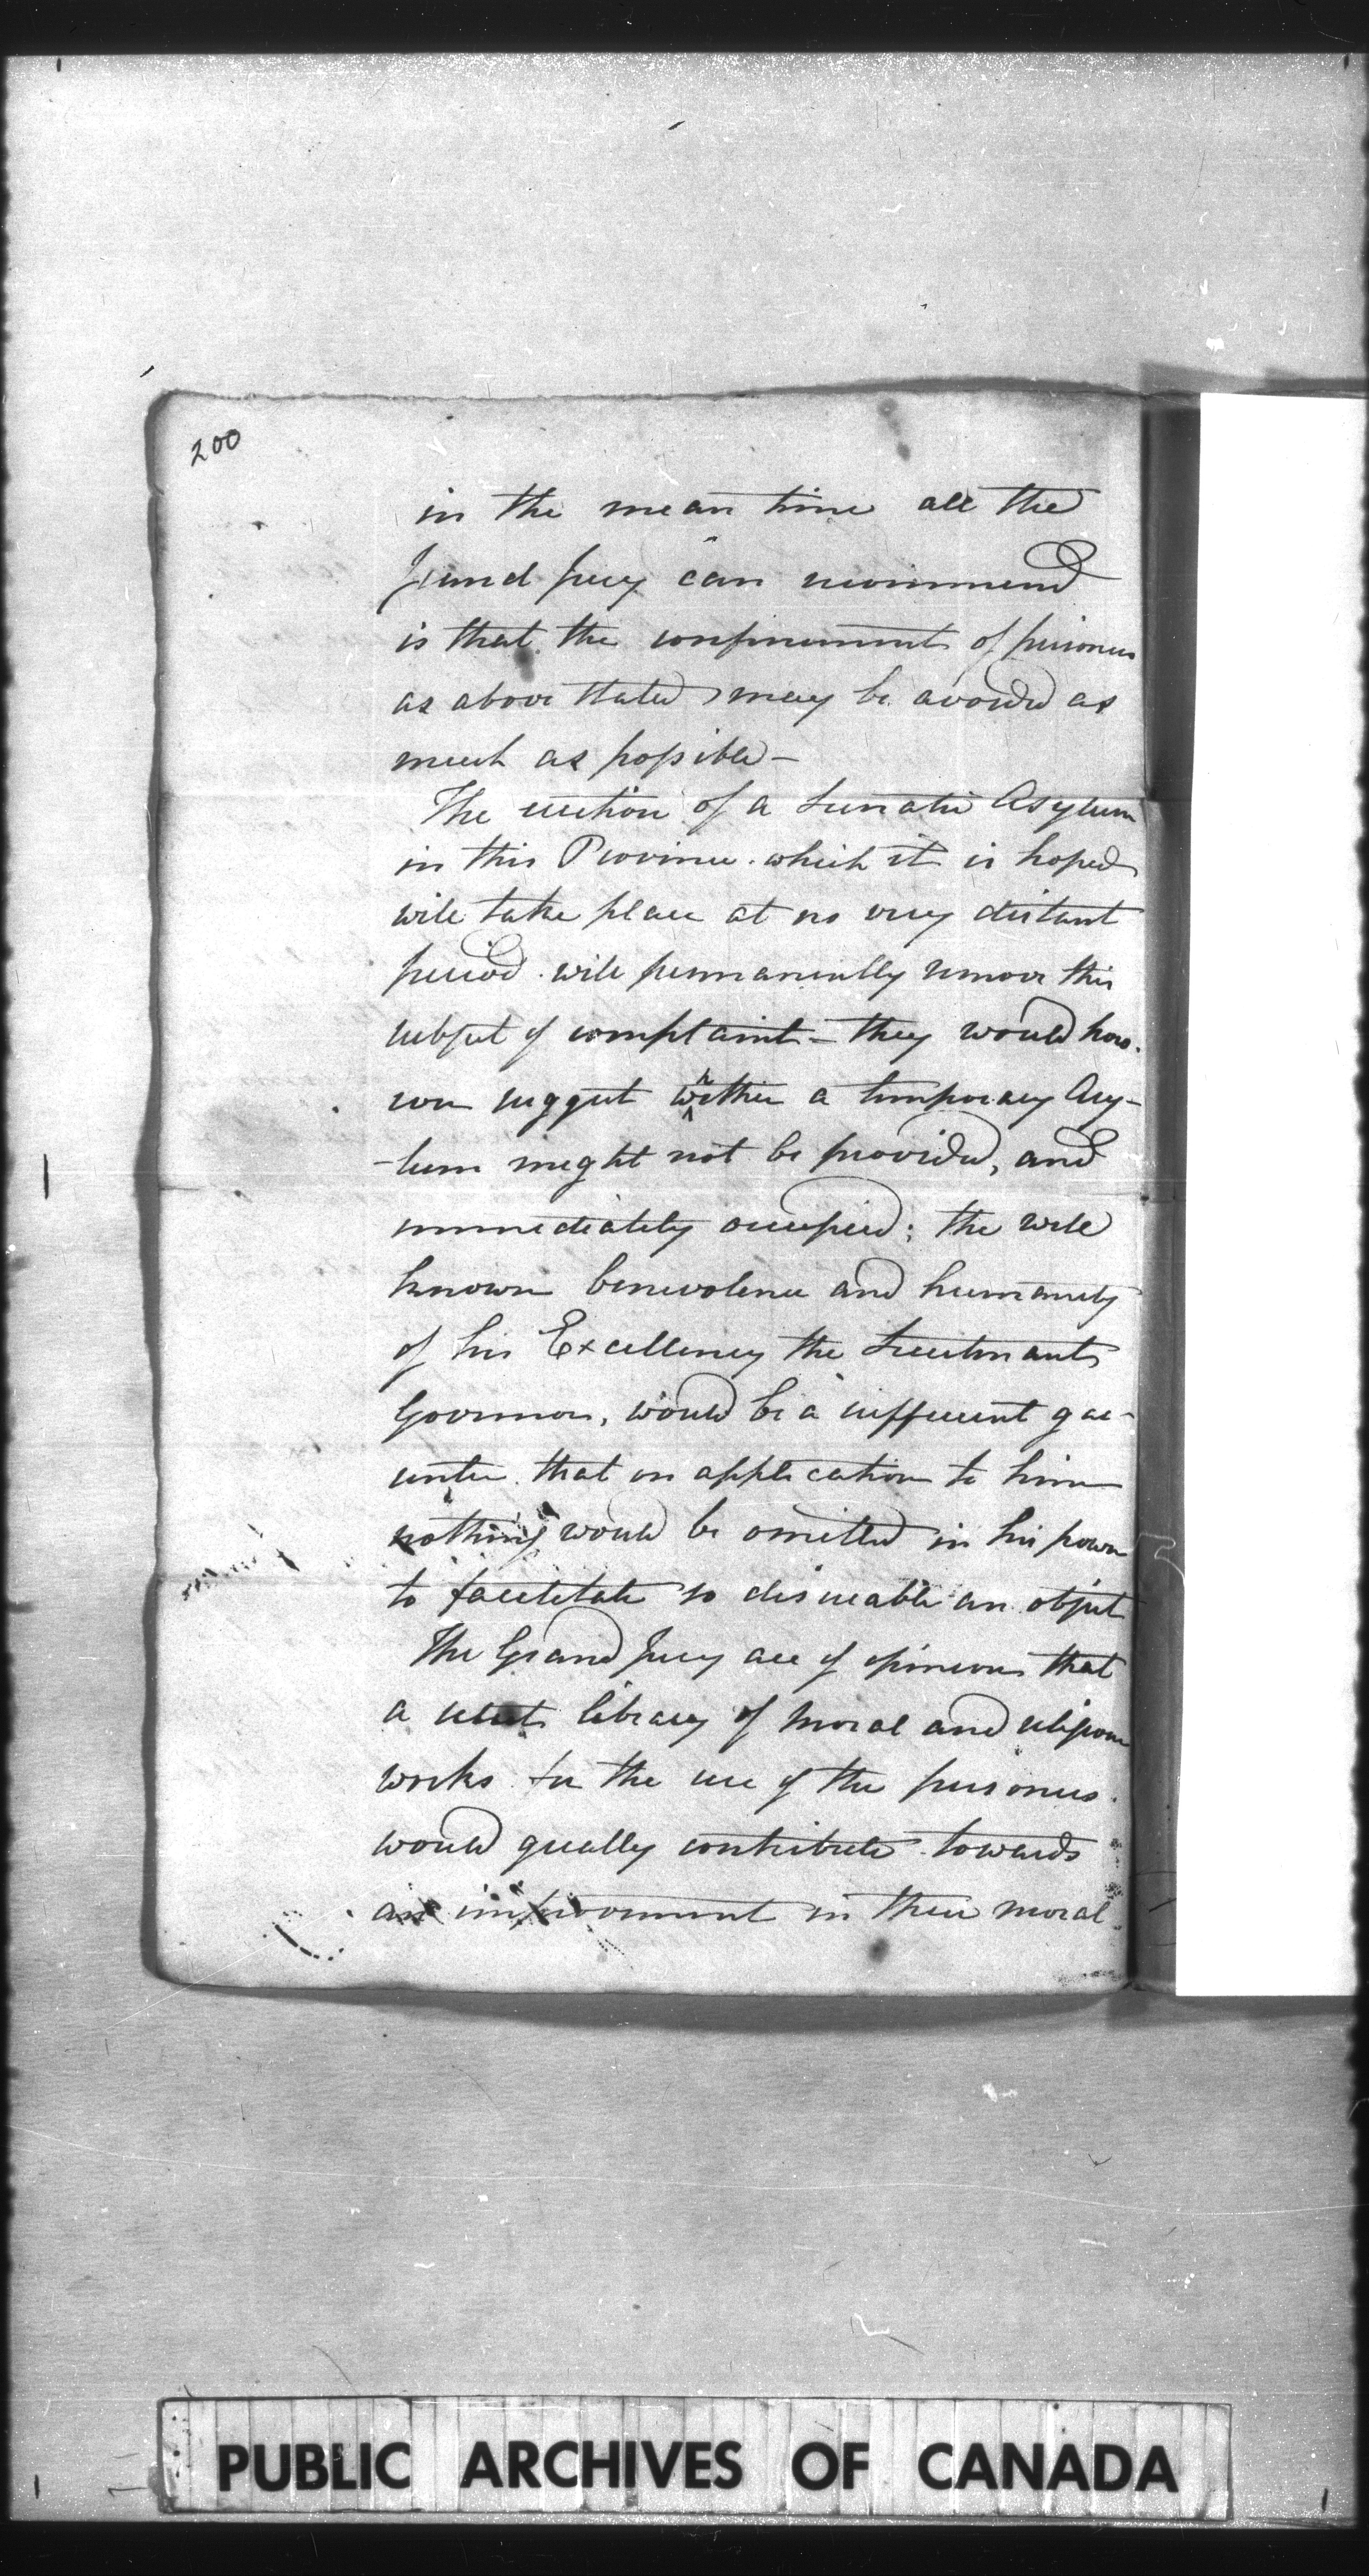 200
in the mean time all the
Grand Jury can recommend
is that the confinement of prisoners
as above stated may be avoided as
much as possible —
The erection of a Lunatic Asylum
in this Province which it is hoped
will take place at no very distant
period will permanently remove this
subject of complaint — they would how-
ever suggest whether a temporary Asy-
-lum might not be provided, and
immediately occupied; the well
known benevolence and humanity
of his Excellency the Lieutenant
Governor, would be a sufficient gar-
untee that on application to him
nothing would be omitted in his power
to facilitate so desireable an object
The Grand Jury are of opinion that
a select library of moral and religious
works for the use of the prisoners
would greatly contribute towards
an improvement in their moral
PUBLIC ARCHIVES OF CANADA